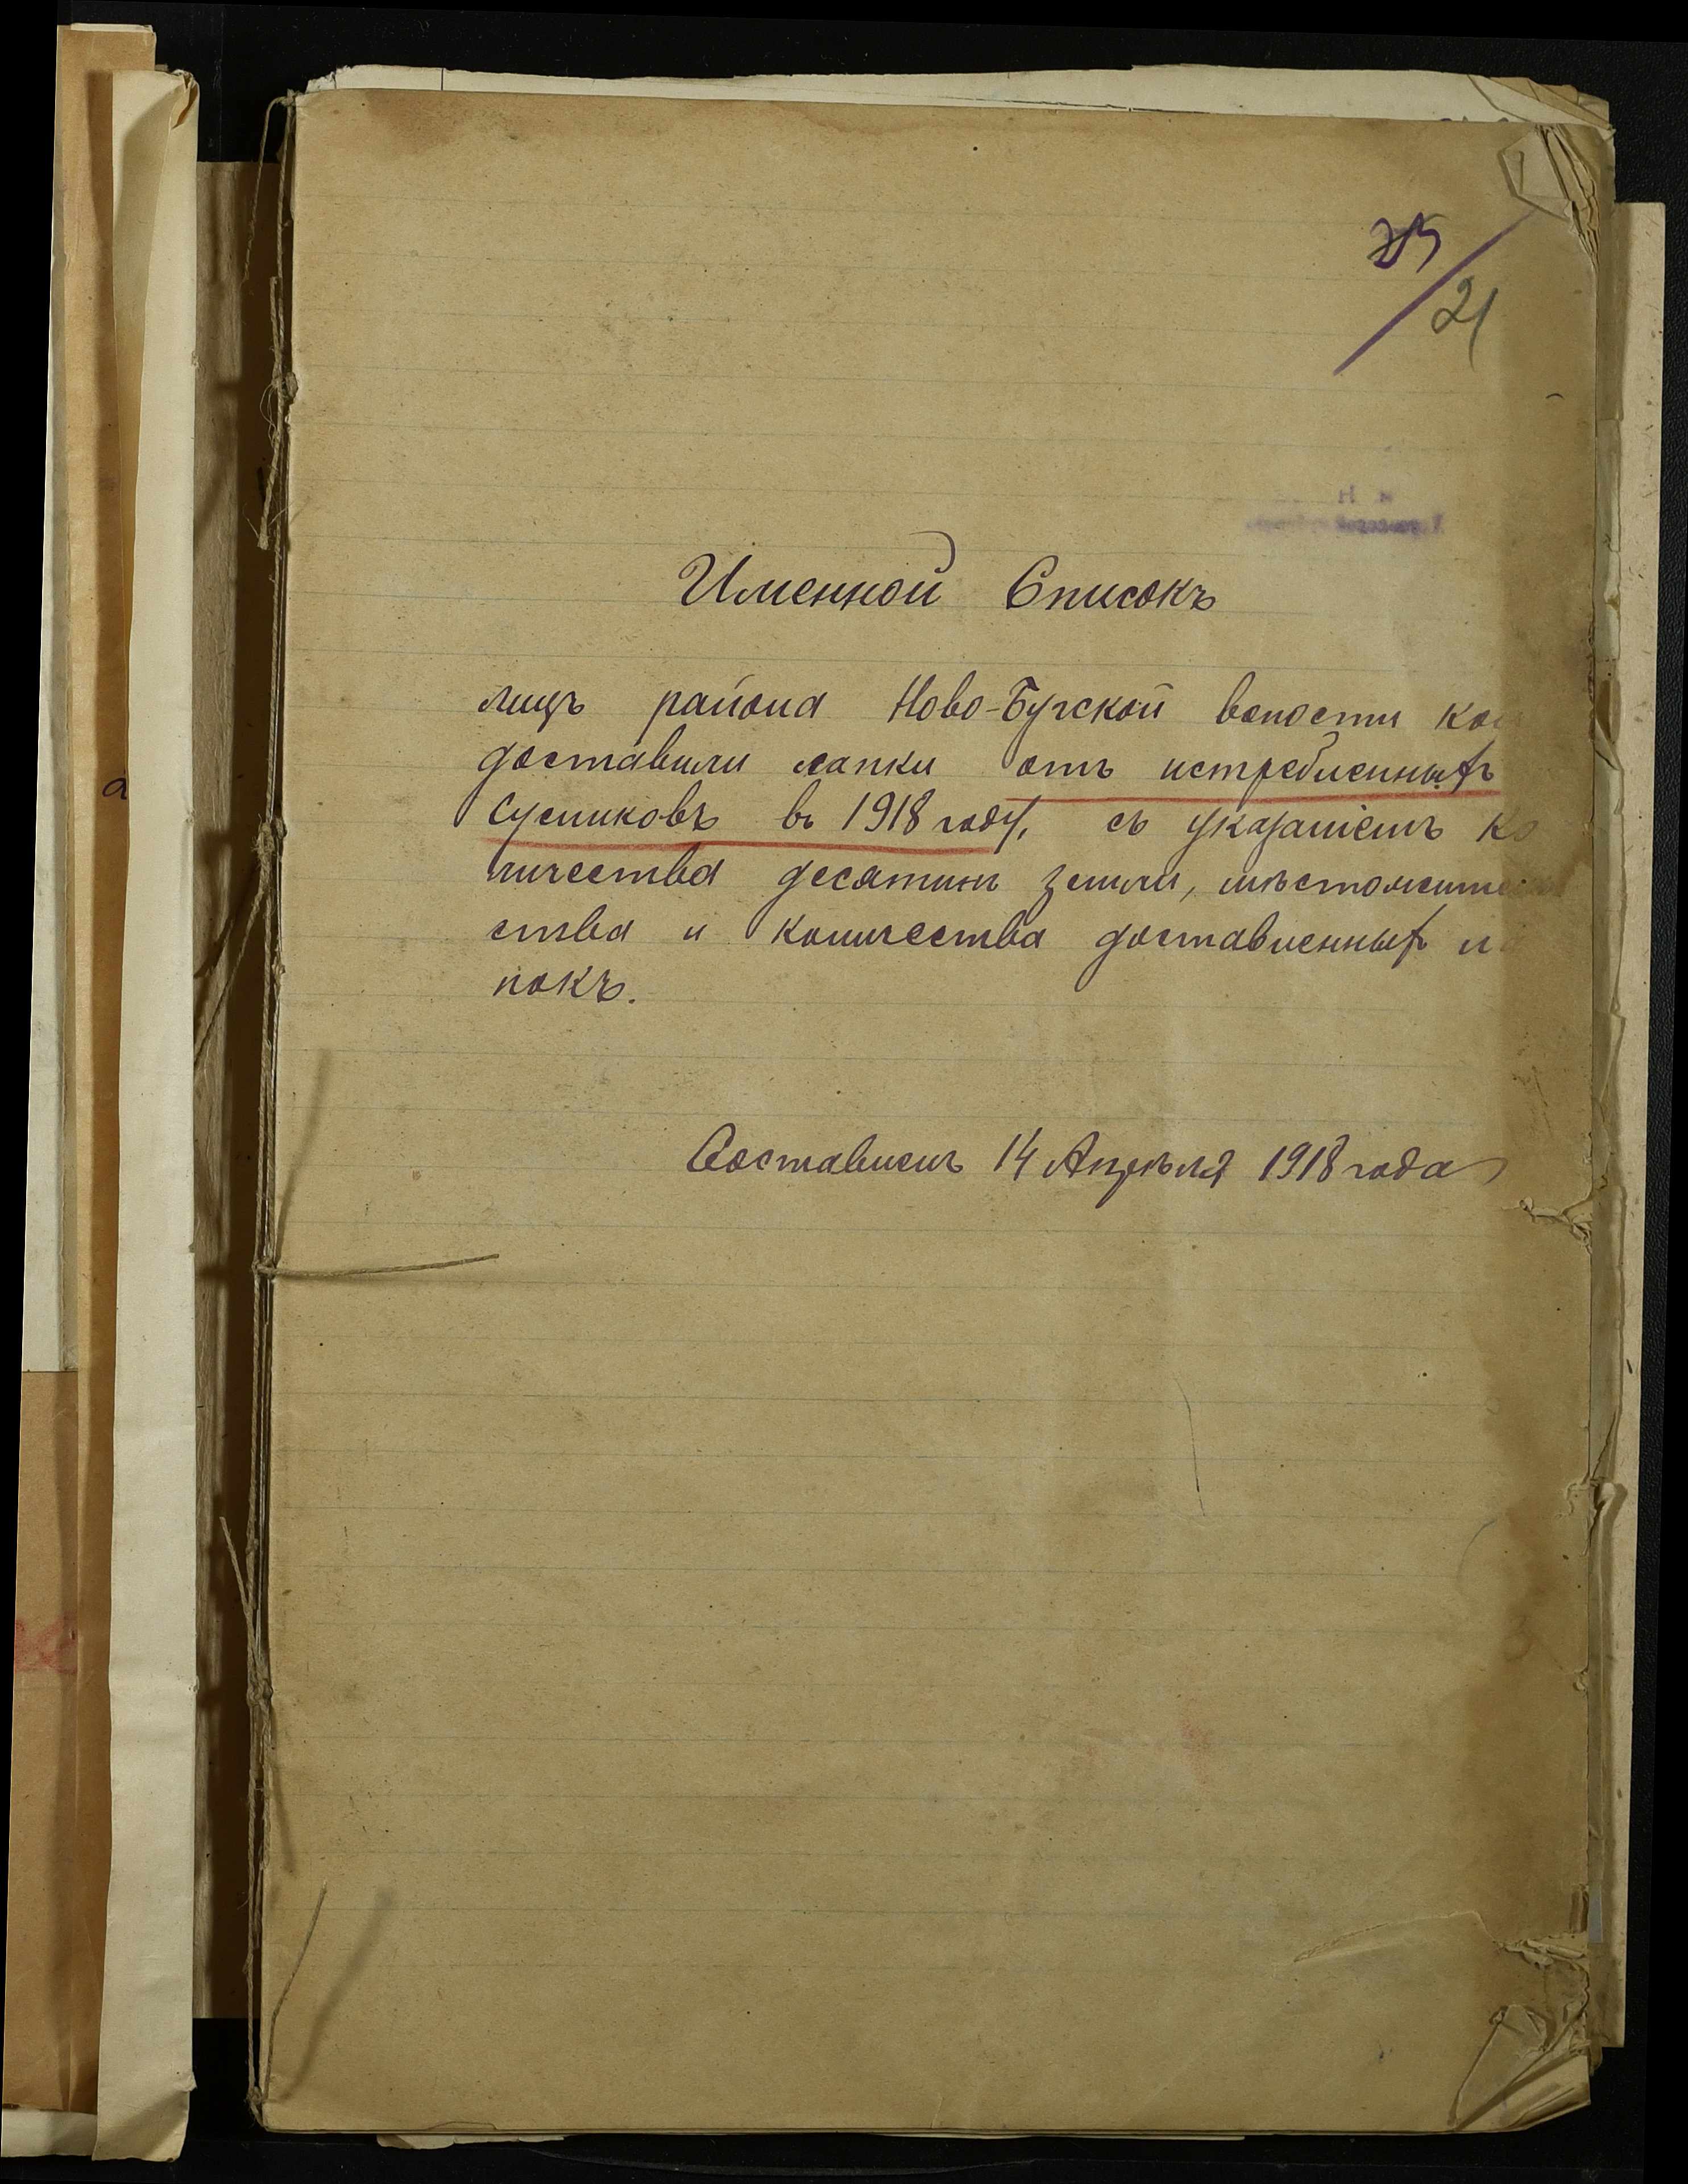 21
Именной Списокъ
лицъ района Ново-Бугской волости
доставили лапки отъ истребленныхъ
сусликовъ въ 1918 году, съ указаніемъ ко
личества десятинъ земли, мѣстожитель
ства и количества доставленныхъ ла
покъ.
Составленъ 14 Апрѣля 1918 года